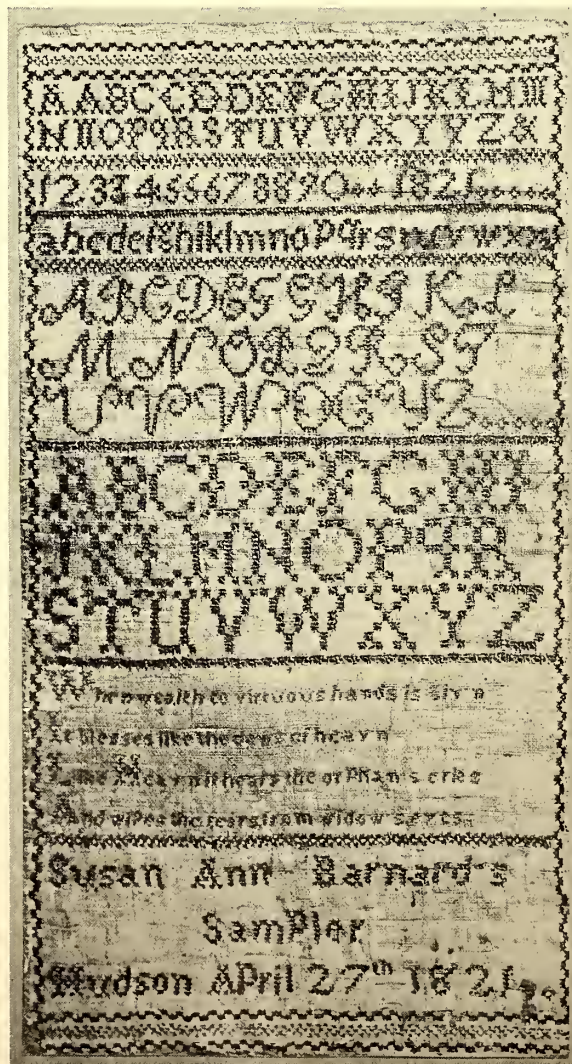 A A B C C D D E F G H I J K L M M
N N O P Q R S T U V W X Y Y Z &
1 2 3 3 4 5 5 6 7 8 8 9 0 1821
abcdefghiklmnopqrs wxy
A B C D E F G H I K L
M N O P Q R S T
U V W X Y Z
A B C D E F G H I
J K L M N O P Q R
S T U V W X Y Z
When wealth to virtuous hands is givn
It blesses like the dews of heavn
Like Heavn it hears the orPhan s cries
And wiPes the tears from widow s eyes
Susan Ann Barnard s
SamPler
Hudson APril 27th 1821